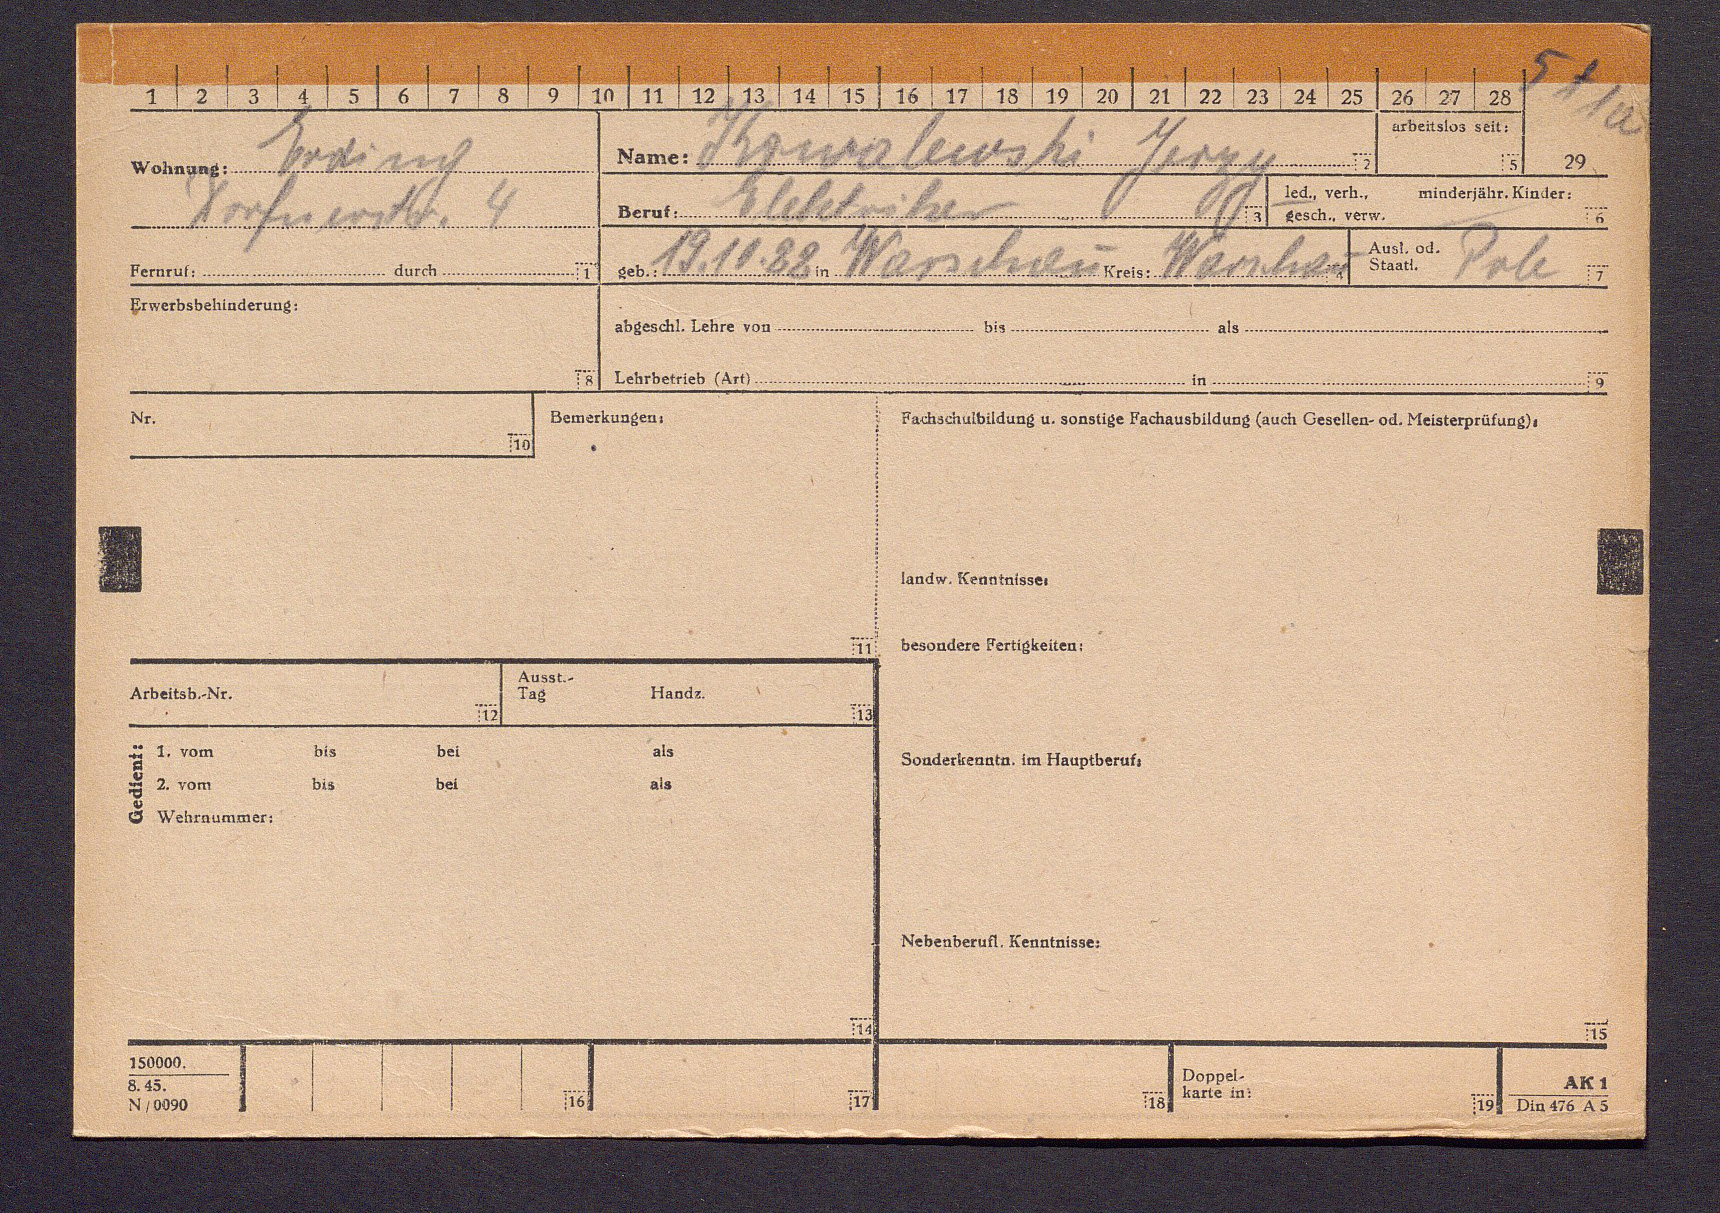 1 2 3 4 5 6 7 8 9 10 11 12 13 14 15 16 17 18 19 20 21 22 23 24 25 26 27 28
29
arbeitslos seit: 5
Wohnung: Erding
Dorfnerstr. 4
Fernruf: durch 1
Name: Kowalewski Jerzy 2
Beruf: Elektriker 3
led., verh., minderjähr. Kinder:
gesch., verw. 6
geb.: 19.10.22 in Warschau Kreis: Warschau 4
Ausl. od.
Staatl. Pole 7
Erwerbsbehinderung:
8
abgeschl. Lehre von bis als
Lehrbetrieb (Art) in 9
Nr.
10
Bemerkungen:
11
Fachschulbildung u. sonstige Fachausbildung (auch Gesellen- od. Meisterprüfung):
landw. Kenntnisse:
besondere Fertigkeiten:
Sonderkenntn. im Hauptberuf:
Nebenberufl. Kenntnisse:
15
Arbeitsb.-Nr. 12
Ausst.-
Tag Handz. 13
Gedient:
1. vom bis bei als
2. vom bis bei als
Wehrnummer:
14
150000.
8. 45.
N/0090
16
17
18
Doppel-
karte in: 19
AK 1
Din 476 A 5